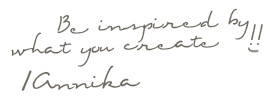 Be inspired by
what you create !!
/Annika